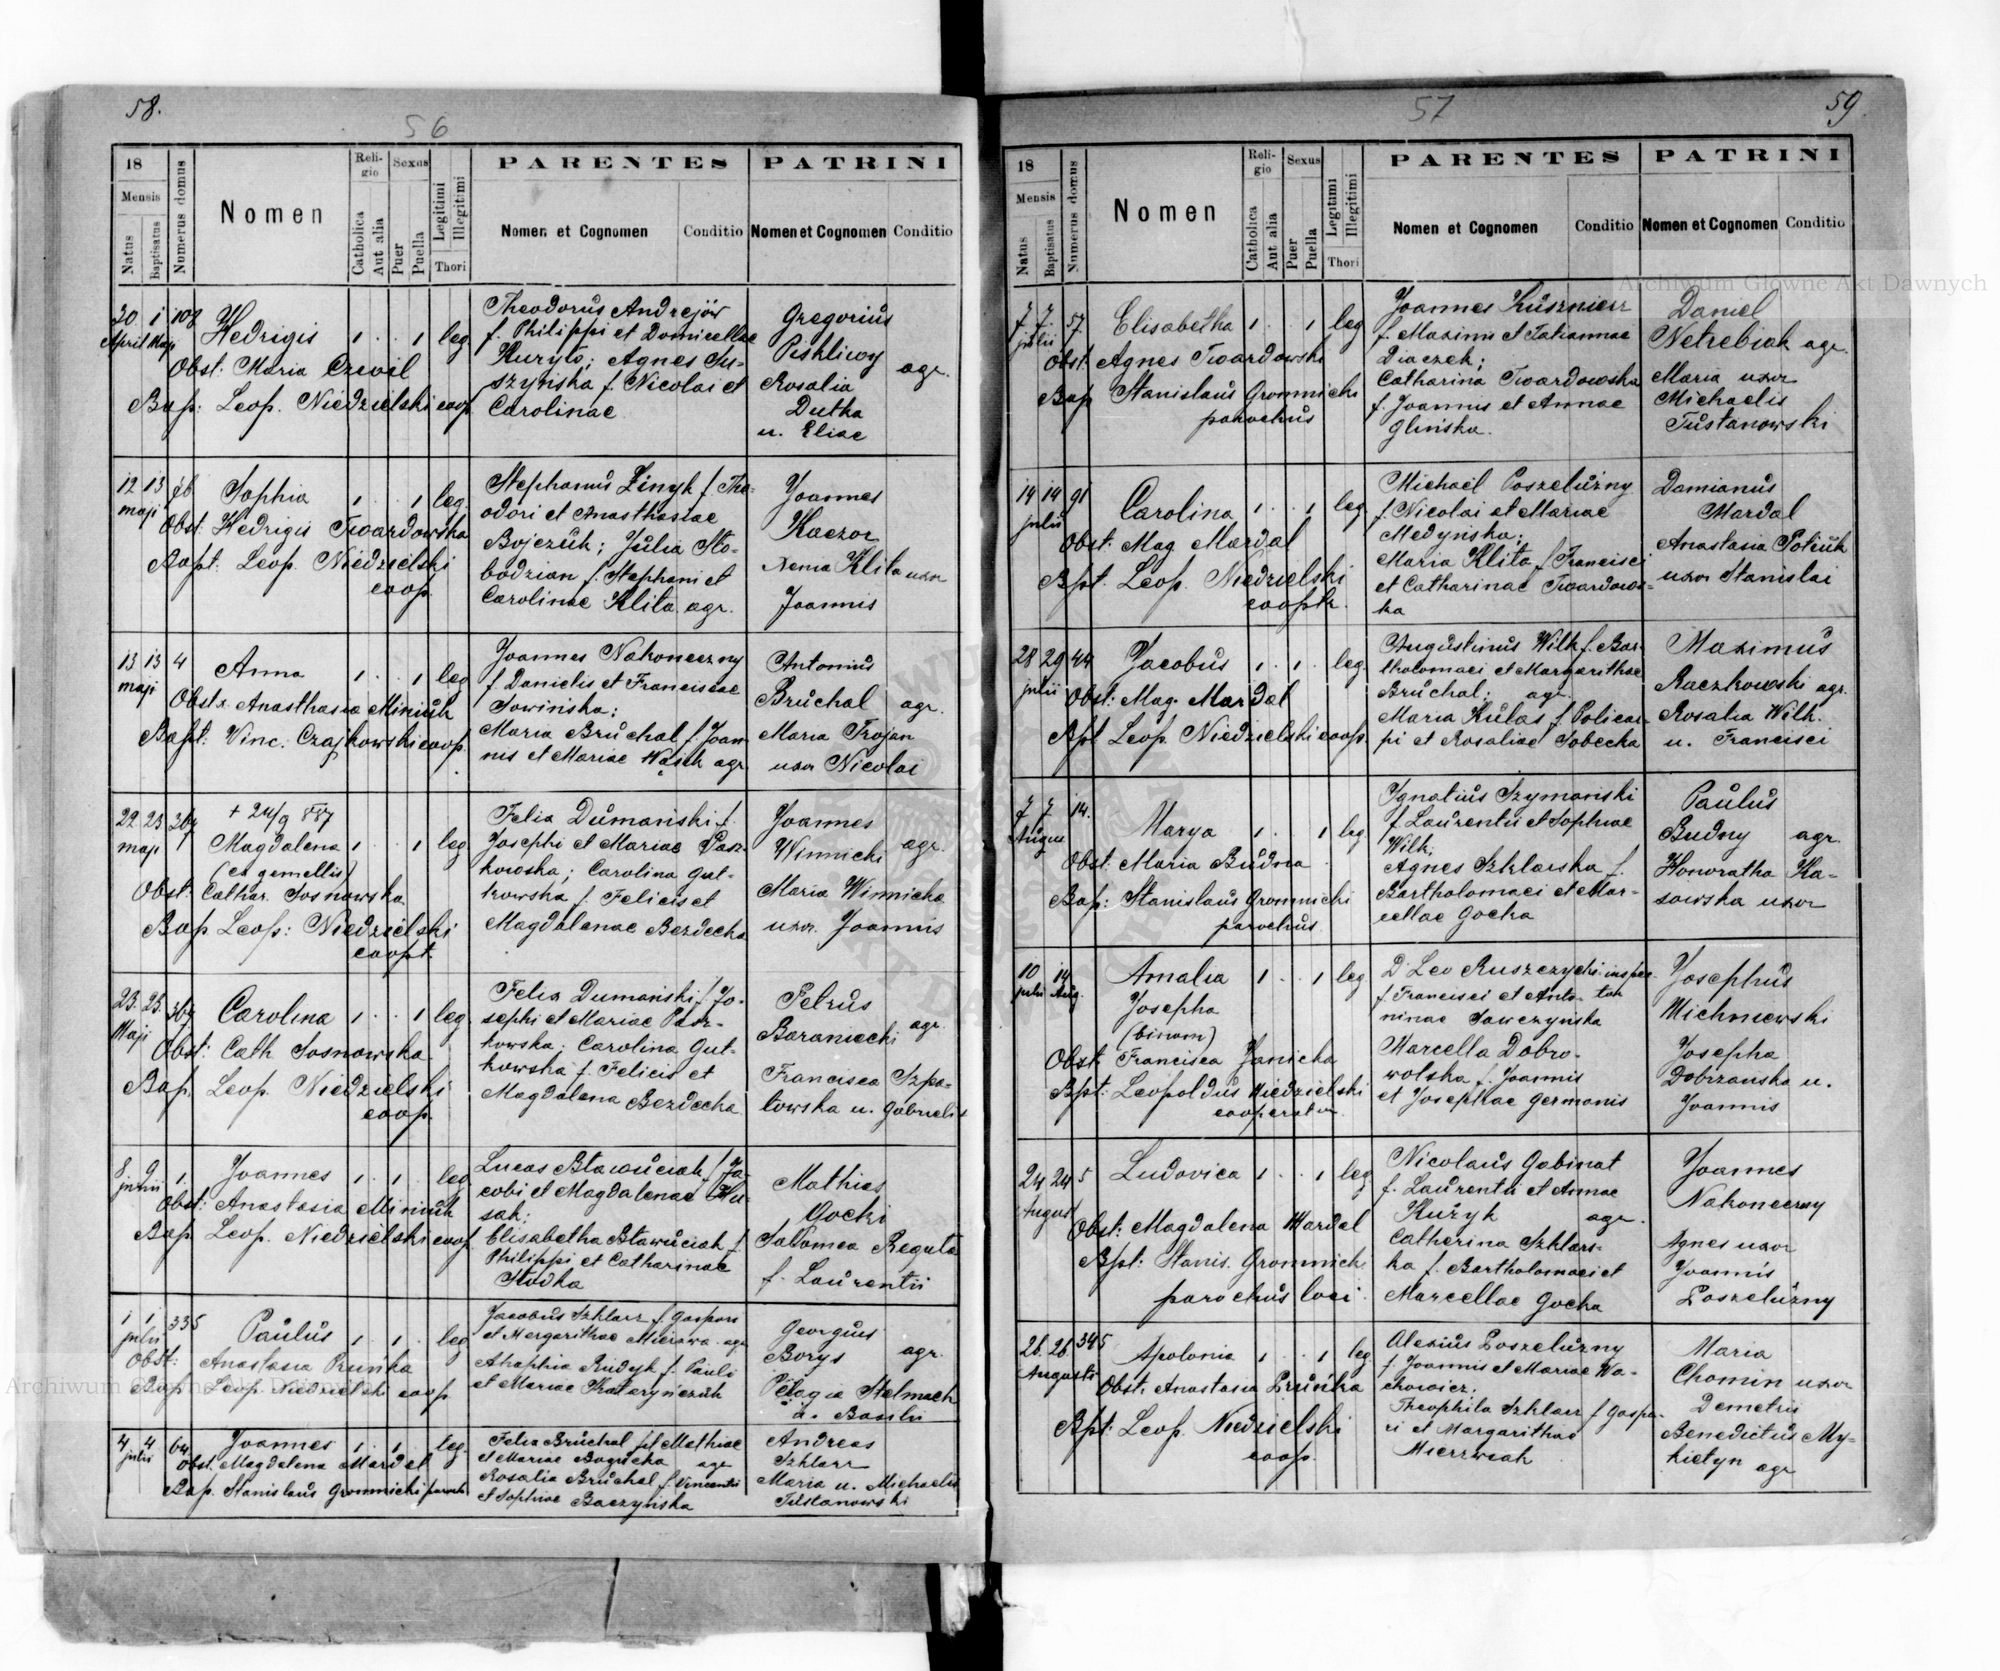 58.
56
18
Mensis
Natus
Baptisatus
Numerus domus
Nomen
Religio
Catholica
Aut alia
Sexus
Puer
Puella
Legitimi
Illegitimi
Thori
PARENTES
Nomen et Cognomen
Conditio
PATRINI
Nomen et Cognomen
Conditio
20 1 108
April Maji
Hedrigis 1 1 leg
Obst: Maria Czevil
Bap: Leop. Niedzielski coop
Theodorus Andrejów
f. Philippi et Domicellae
Kuryło; Agnes Tu-
szyńska f. Nicolai et
Carolinae
Gregorius
Pishliwy
agr.
Rosalia
Dutka
u. Eliae
12 13
maji
Sophia 1 1 leg.
Obst: Hedrigis Twardowska
Bapt: Leop. Niedzielski
coop.
Stephanus Zinyk f. The-
odori et Anasthasiae
Bojczuk; Julia Sło-
bodzian f. Stephani et
Carolinae Klita agr.
Joannes
Kaczor
Klita uxor
Joannis
13 13 4
maji
Anna 1 1 leg
Obstx. Anasthasia Miniuk
Bapt: Vinc. Czajkowski coop.
Joannes Nakoneczny
f. Danielis et Franciscae
Sowińska;
Maria Bruchal f. Joan-
nis et Mariae Wąsik agr
Antonius
Bruchal agr.
Maria Trojan
uxor Nicolai
22 23 367
maji
+ 24/9 887
Magdalena 1 1 leg
(ex gemellis)
Obst: Cathar. Sosnowska
Bap Leop: Niedzielski
coopt.
Felix Dumański f.
Josephi et Mariae Pasz-
kowska; Carolina Gut-
kowska f. Felicis et
Magdalenae Bezdecka
Joannes
Winnicki agr.
Maria Winnicka
uxor. Joannis
23. 23. 367
Maji
Carolina 1 1 leg
Obst: Cath Sosnowska
Bap. Leop. Niedzielski
coop.
Felix Dumański f. Jo-
sephi et Mariae Pasz-
kowska; Carolina Gut-
kowska f. Felicis et
Magdalena Bezdecka
Petrus
Baraniecki agr.
Francisca Szpa-
kowska u. Gabrielis
8 9 1.
junii
Joannes 1 1 leg
Obst: Anastasia Miniuk
Bap. Leop. Niedzielski coop
Lucas Bławuciak f. Ja-
cobi et Magdalenae Hu-
sak;
Elisabetha Bławuciak f.
Philippi et Catharinae
Studka
Mathias
Gocki
Salomea Reguła
f. Laurentii
1 1 335
julii
Paulus 1 1 leg
Obst: Anastasia Pruńka
Bap Leop. Niedzielski coop
Jacobus Szklarz f. Gaspari
et Margarithae Mierzwa agr
Ahaphia Rudyk f. Pauli
et Mariae Kataryńczuk
Georgius
Borys agr.
Pelagia Stelmach
u. Basilii
4 4 64
julii
Joannes 1 1 leg.
Obst. Magdalena Mardal
Bap. Stanislaus Gromnicki paroch
Felix Bruchal f. Mathiae
et Mariae Bogucka agr
Rosalia Bruchal f. Vincentii
et Sophiae Baczyńska
Andreas
Szklarz
Maria u. Michaelis
Tustanowski
57
59
18
Mensis
Natus
Baptisatus
Numerus domus
Nomen
Religio
Catholica
Aut alia
Sexus
Puer
Puella
Legitimi
Illegitimi
Thori
PARENTES
Nomen et Cognomen
Conditio
PATRINI
Nomen et Cognomen
Conditio
Archiwum Główne Akt Dawnych
7 7. 57.
julii
Elisabetha 1 1 leg
Obst: Agnes Twardowski
Bap Stanislaus Gromnicki
parochus
Joannes Kusznierz
f. Maximi et Tatiannae
Diaczek;
Catharina Twardowska
f. Joannis et Annae
Glińska.
Daniel
Netrebiak agr.
Maria uxor
Michaelis
Tustanowski
14 14 91
julii
Carolina 1 1 leg
Obst: Mag Mardal
Bpt. Leop. Niedzielski
cooptr.
Michaël Poszełużny
f. Nicolai et Mariae
Medyńska;
Maria Klita f. Francisci
et Catharinae Twardows-
ka
Damianus
Mardal
Anastasia Poticuk
uxor Stanislai
28 29 44
julii
Jacobus 1 1 leg.
Obst: Mag. Mardal
Bpt Leop. Niedzielski coop.
Augustinus Wilk f. Bar-
tholomaei et Margarithae
Bruchal; agr.
Maria Kulas f. Policar-
pi et Rosaliae Sobecka
Maximus
Raczkowski agr.
Rosalia Wilk.
u. Francisci
7 7 14.
Augus
Marya 1 1 leg
Obst: Maria Budna
Bap: Stanislaus Gromnicki
parochus.
Ignatius Szymański
f. Laurentii et Sophiae
Wilk;
Agnes Szklarska f.
Bartholomaei et Mar-
cellae Gocka
Paulus
Budny agr.
Honoratha Ka-
sowska uxor
10 14
julii Aug.
Amalia 1 1 leg
Josepha
(binom)
Obst Francisca Janicka
Bpt: Leopoldus Niedzielski
cooperator
D. Leo Ruszczycki inspec-
f. Francisci et Anto- tor
ninae Sawczyńska
Marcella Dobro-
wolska f. Joannis
et Josephae Germanis
Josephus
Michniewski
Josepha
Dobrzanska u.
Joannis
24 24 5
August
Ludovica 1 1 leg
Obst: Magdalena Mardal
Bpt: Stanis. Gromnicki
parochus loci
Nicolaus Gabinat
f. Laurentii et Annae
Kuzyk agr.
Catherina Szklars-
ka f. Bartholomaei et
Marcellae Gocka
Joannes
Nakoneczny
Agnes uxor
Joannis
Poszełużny
26. 26. 345
Augusti
Apolonia 1 1 leg
Obst. Anastasia Pruńka
Bpt: Leop. Niedzielski
coop.
Alexius Poszełużny
f. Joannis et Mariae Wa-
chowicz;
Theophila Szklarz f. Gaspa-
ri et Margarithae
Mierzwiak
Maria
Chomin uxor
Demetrii
Benedictus My-
kietyn agr
Archiwum Główne Akt Dawnych